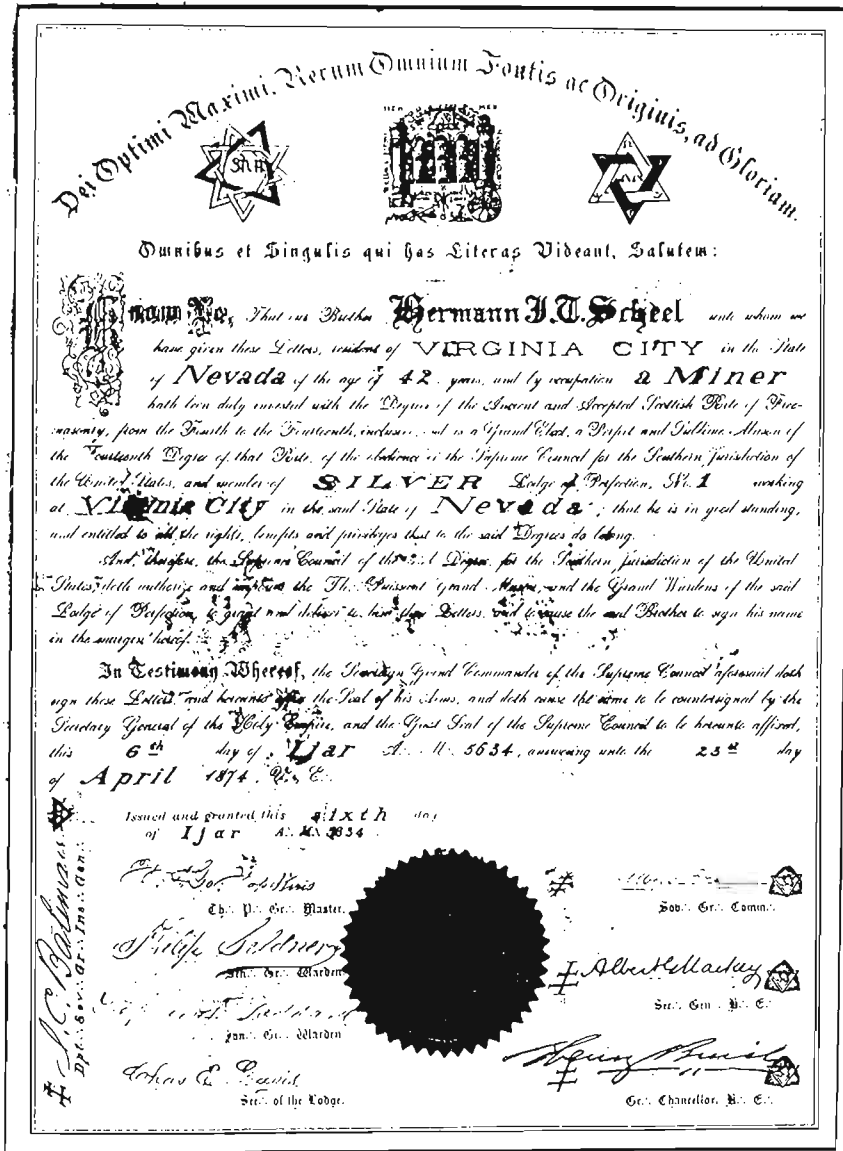 Dei Optimi Maximi, Rerum Omnium Fontis ac Originis, ad Gloriam.
Omnibus et Singulis qui has Literas Videant, Salutem:
Know Ye, That our Brother Hermann J. T. Scheel unto whom we
have given these Letters, resident of VIRGINIA CITY in the State
of Nevada of the age of 42 years, and by occupation a Miner
hath been duly invested with the Degrees of the Ancient and Accepted Scottish Rite of Free-
masonry, from the Fourth to the Fourteenth, inclusive, and is a Grand Elect, a Perfect and Sublime Mason of
the Fourteenth Degree of that Rite, of the obedience of the Supreme Council for the Southern Jurisdiction of
the United States, and member of SILVER Lodge of Perfection, No. 1 working
at Virginia City in the said State of Nevada; that he is in good standing,
and entitled to all the rights, benefits and privileges that to the said Degrees do belong.
And, therefore, the Supreme Council of the Degree, for the Southern Jurisdiction of the United
States, doth authorize and the Th. Puissant Grand Master, and the Grand Wardens of the said
Lodge of Perfection, to grant and deliver to him these Letters, and to cause the said Brother to sign his name
in the margin hereof.
In Testimony Whereof, the Sovereign Grand Commander of the Supreme Council aforesaid doth
sign these Letters, and hereunto affix the Seal of his Arms, and doth cause the same to be countersigned by the
Secretary General of the Holy Empire, and the Great Seal of the Supreme Council to be hereunto affixed,
this 6th day of Ijar A∴ M∴ 5634, answering unto the 23rd day
of April 1874, V∴ E∴
Issued and granted this sixth day
of Ijar A∴ M∴ 5634
Hopkins
Th∴ P∴ Gr∴ Master.
Philip Seldner
Sen∴ Gr∴ Warden
Jun∴ Gr∴ Warden
Chas E. David
Sec∴ of the Lodge.
Sov∴ Gr∴ Comm∴
Albert G Mackey
Sec∴ Gen∴ H∴ E∴
Henry Buist
Gr∴ Chancellor, H∴ E∴
J. C. Batchelor
Dpt∴ Sov∴ Gr∴ Ins∴ Gen∴